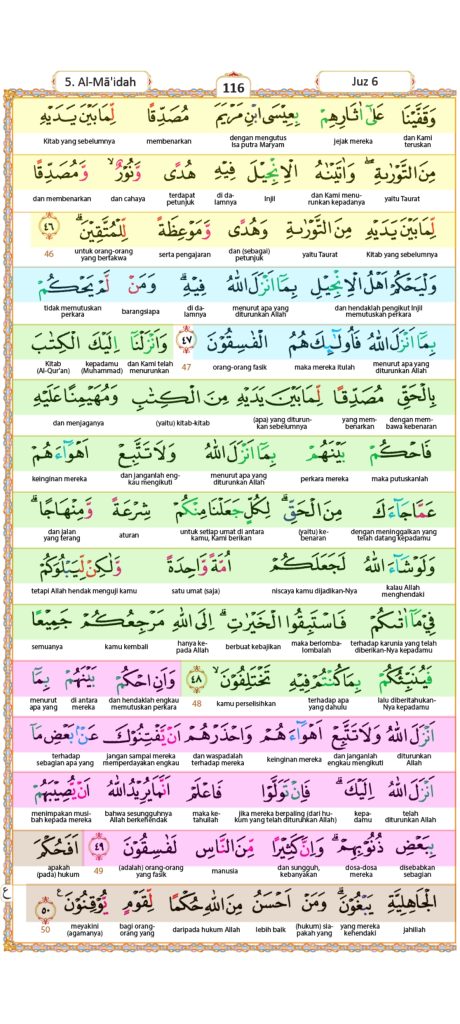 5. Al-Mā'idah
116
Juz 6
وَقَفَّيْنَا عَلٰٓى اٰثَارِهِمْ بِعِيْسَى ابْنِ مَرْيَمَ مُصَدِّقًا لِّمَا بَيْنَ يَدَيْهِ
dan Kami teruskan jejak mereka dengan mengutus Isa putra Maryam membenarkan Kitab yang sebelumnya
مِنَ التَّوْرٰىةِ ۖ وَاٰتَيْنٰهُ الْاِنْجِيْلَ فِيْهِ هُدًى وَّنُوْرٌۙ وَّمُصَدِّقًا
yaitu Taurat dan Kami menu-runkan kepadanya Injil di da-lamnya terdapat petunjuk dan cahaya dan membenarkan
لِّمَا بَيْنَ يَدَيْهِ مِنَ التَّوْرٰىةِ وَهُدًى وَّمَوْعِظَةً لِّلْمُتَّقِيْنَۗ ٤٦
Kitab yang sebelumnya yaitu Taurat dan (sebagai) petunjuk serta pengajaran untuk orang-orang yang bertakwa 46
وَلْيَحْكُمْ اَهْلُ الْاِنْجِيْلِ بِمَآ اَنْزَلَ اللّٰهُ فِيْهِۗ وَمَنْ لَّمْ يَحْكُمْ
dan hendaklah pengikut Injil memutuskan perkara menurut apa yang diturunkan Allah di da-lamnya barangsiapa tidak memutuskan perkara
بِمَآ اَنْزَلَ اللّٰهُ فَاُولٰۤىِٕكَ هُمُ الْفٰسِقُوْنَ ٤٧ وَاَنْزَلْنَآ اِلَيْكَ الْكِتٰبَ
menurut apa yang diturunkan Allah maka mereka itulah orang-orang fasik 47 dan Kami telah menurunkan kepadamu (Muhammad) Kitab (Al-Qur'an)
بِالْحَقِّ مُصَدِّقًا لِّمَا بَيْنَ يَدَيْهِ مِنَ الْكِتٰبِ وَمُهَيْمِنًا عَلَيْهِ
dengan mem-bawa kebenaran yang mem-benarkan (apa) yang diturun-kan sebelumnya (yaitu) kitab-kitab dan menjaganya
فَاحْكُمْ بَيْنَهُمْ بِمَآ اَنْزَلَ اللّٰهُ وَلَا تَتَّبِعْ اَهْوَاۤءَهُمْ
maka putuskanlah perkara mereka menurut apa yang diturunkan Allah dan janganlah eng-kau mengikuti keinginan mereka
عَمَّا جَاۤءَكَ مِنَ الْحَقِّۗ لِكُلٍّ جَعَلْنَا مِنْكُمْ شِرْعَةً وَّمِنْهَاجًاۗ
dengan meninggalkan yang telah datang kepadamu (yaitu) ke-benaran untuk setiap umat di antara kamu, Kami berikan aturan dan jalan yang terang
وَلَوْ شَاۤءَ اللّٰهُ لَجَعَلَكُمْ اُمَّةً وَّاحِدَةً وَّلٰكِنْ لِّيَبْلُوَكُمْ
kalau Allah menghendaki niscaya kamu dijadikan-Nya satu umat (saja) tetapi Allah hendak menguji kamu
فِيْ مَآ اٰتٰىكُمْ فَاسْتَبِقُوا الْخَيْرٰتِۗ اِلَى اللّٰهِ مَرْجِعُكُمْ جَمِيْعًا
terhadap karunia yang telah diberikan-Nya kepadamu maka berlomba-lombalah berbuat kebajikan hanya ke-pada Allah kamu kembali semuanya
فَيُنَبِّئُكُمْ بِمَا كُنْتُمْ فِيْهِ تَخْتَلِفُوْنَۙ ٤٨ وَاَنِ احْكُمْ بَيْنَهُمْ بِمَآ
lalu diberitahukan-Nya kepadamu terhadap apa yang dahulu kamu perselisihkan 48 dan hendaklah engkau memutuskan perkara di antara mereka menurut apa yang
اَنْزَلَ اللّٰهُ وَلَا تَتَّبِعْ اَهْوَاۤءَهُمْ وَاحْذَرْهُمْ اَنْ يَّفْتِنُوْكَ عَنْۢ بَعْضِ مَآ
diturunkan Allah dan janganlah engkau mengikuti keinginan mereka dan waspadalah terhadap mereka jangan sampai mereka memperdayakan engkau terhadap sebagian apa yang
اَنْزَلَ اللّٰهُ اِلَيْكَۗ فَاِنْ تَوَلَّوْا فَاعْلَمْ اَنَّمَا يُرِيْدُ اللّٰهُ اَنْ يُّصِيْبَهُمْ
telah diturunkan Allah kepa-damu jika mereka berpaling (dari hu-kum yang telah diturunkan Allah) maka ke-tahuilah bahwa sesungguhnya Allah berkehendak menimpakan musi-bah kepada mereka
بِبَعْضِ ذُنُوْبِهِمْۗ وَاِنَّ كَثِيْرًا مِّنَ النَّاسِ لَفٰسِقُوْنَ ٤٩ اَفَحُكْمَ
disebabkan sebagian dosa-dosa mereka dan sungguh, kebanyakan manusia (adalah) orang-orang yang fasik 49 apakah (pada) hukum
الْجَاهِلِيَّةِ يَبْغُوْنَۗ وَمَنْ اَحْسَنُ مِنَ اللّٰهِ حُكْمًا لِّقَوْمٍ يُّوْقِنُوْنَ ࣖ ٥٠
jahiliah yang mereka kehendaki (hukum) sia-pakah yang lebih baik daripada hukum Allah bagi orang-orang yang meyakini (agamanya) 50
ع